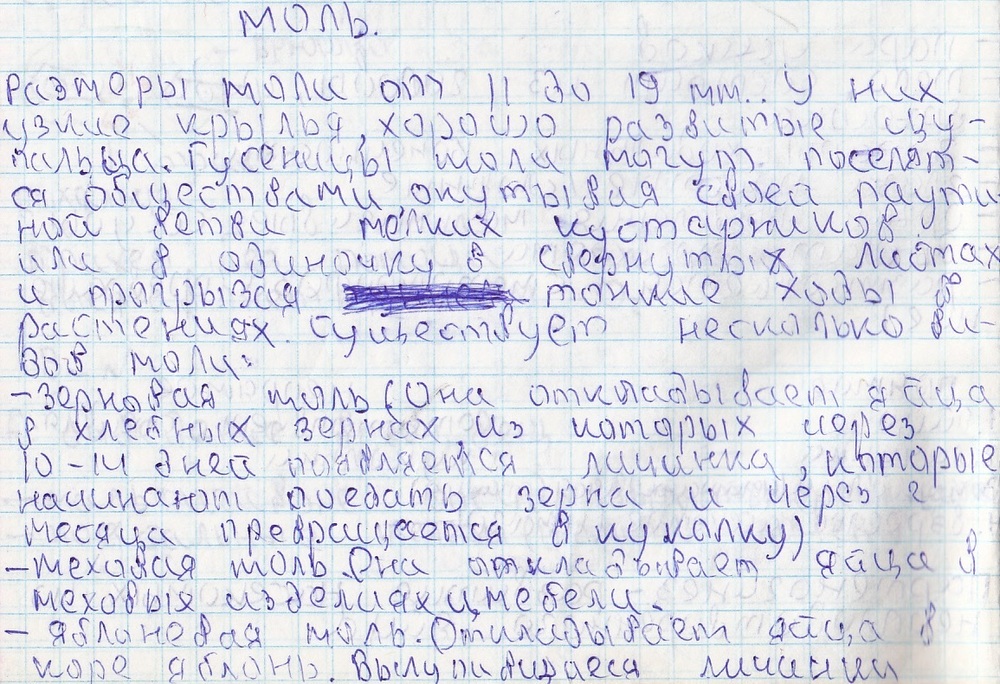 моль.
Размеры моли от 11 до 19 мм.. У них
узкие крылья, хорошо развитые щу-
пальца. Гусеницы моли могут поселят-
ся обществами, окутывая своей паути
ной ветви мелких кустарников
или в одиночку в свернутых листах
и прогрызая тонкие ходы в
растениях. Существует несколько ви-
дов моли:
- зерновая моль (Она откладывает яйца
в хлебных зернах, из которых через
10-14 дней появляется личинка, которые
начинают поедать зерна и через 2
месяца превращается в куколку)
- меховая моль. Она откладывает яйца в
меховых изделиях и мебели.
- яблоневая моль. Откладывает яйца в
коре яблонь. Вылупившиеся личинки